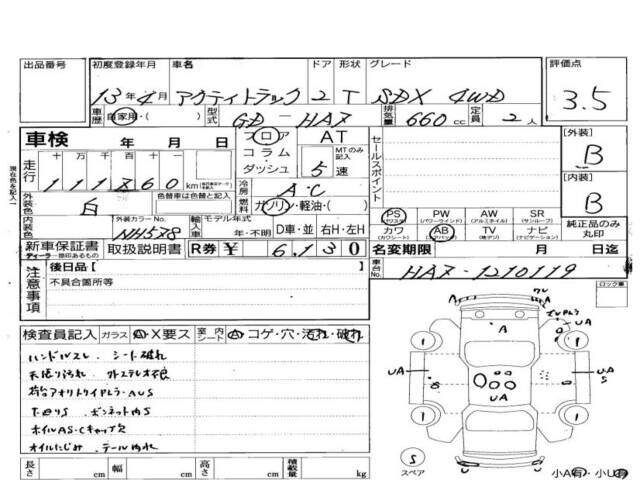 出品番号 初度登録年月 車名 ドア 形状 グレード 評価点
13年4月 アクティトラック 2 T SDX 4WD 3.5
車歴 自家用・( ) 型式 GD-HA7 排気量 660cc 定員 2人
車検 年 月 日
フロア コラム・ダッシュ AT MTのみ記入 5速
セールスポイント
[外装] B
[内装] B
走行 十 万 千 百 十 一
111860 km
冷房 A・C
燃料 ガソリン・軽油・( )
外装色 白 色替車は色替と記入
内装色 外装カラーNo. NH578 輸入車 モデル年式 年・不明 D車・並 右H・左H
PS (パワステ) PW (パワーウインド) AW (アルミホイル) SR (サンルーフ)
カワ (カワシート) AB (エアバッグ) TV (地デジ) ナビ (ナビゲーション)
純正品のみ丸印
新車保証書 ディーラー・捺印あるもの 取扱説明書 R券 ¥ 6,130
名変期限 月 日迄
車台No. HA7-1210119
注意事項 後日品[ ]
不具合箇所等
ロック車
検査員記入 ガラス A・X要ス 室内シート A・コゲ・穴・汚れ・破れ
ハンドルスレ シート破れ
天張り汚れ
下廻りS ボンネット内S
ホイルAS・Cキャップ欠
オイルにじみ
長さ cm 幅 cm 高さ cm 積載量 kg
A A UA
UA UA S
UA
1 1 1 1
S
スペア
小A有・小U有